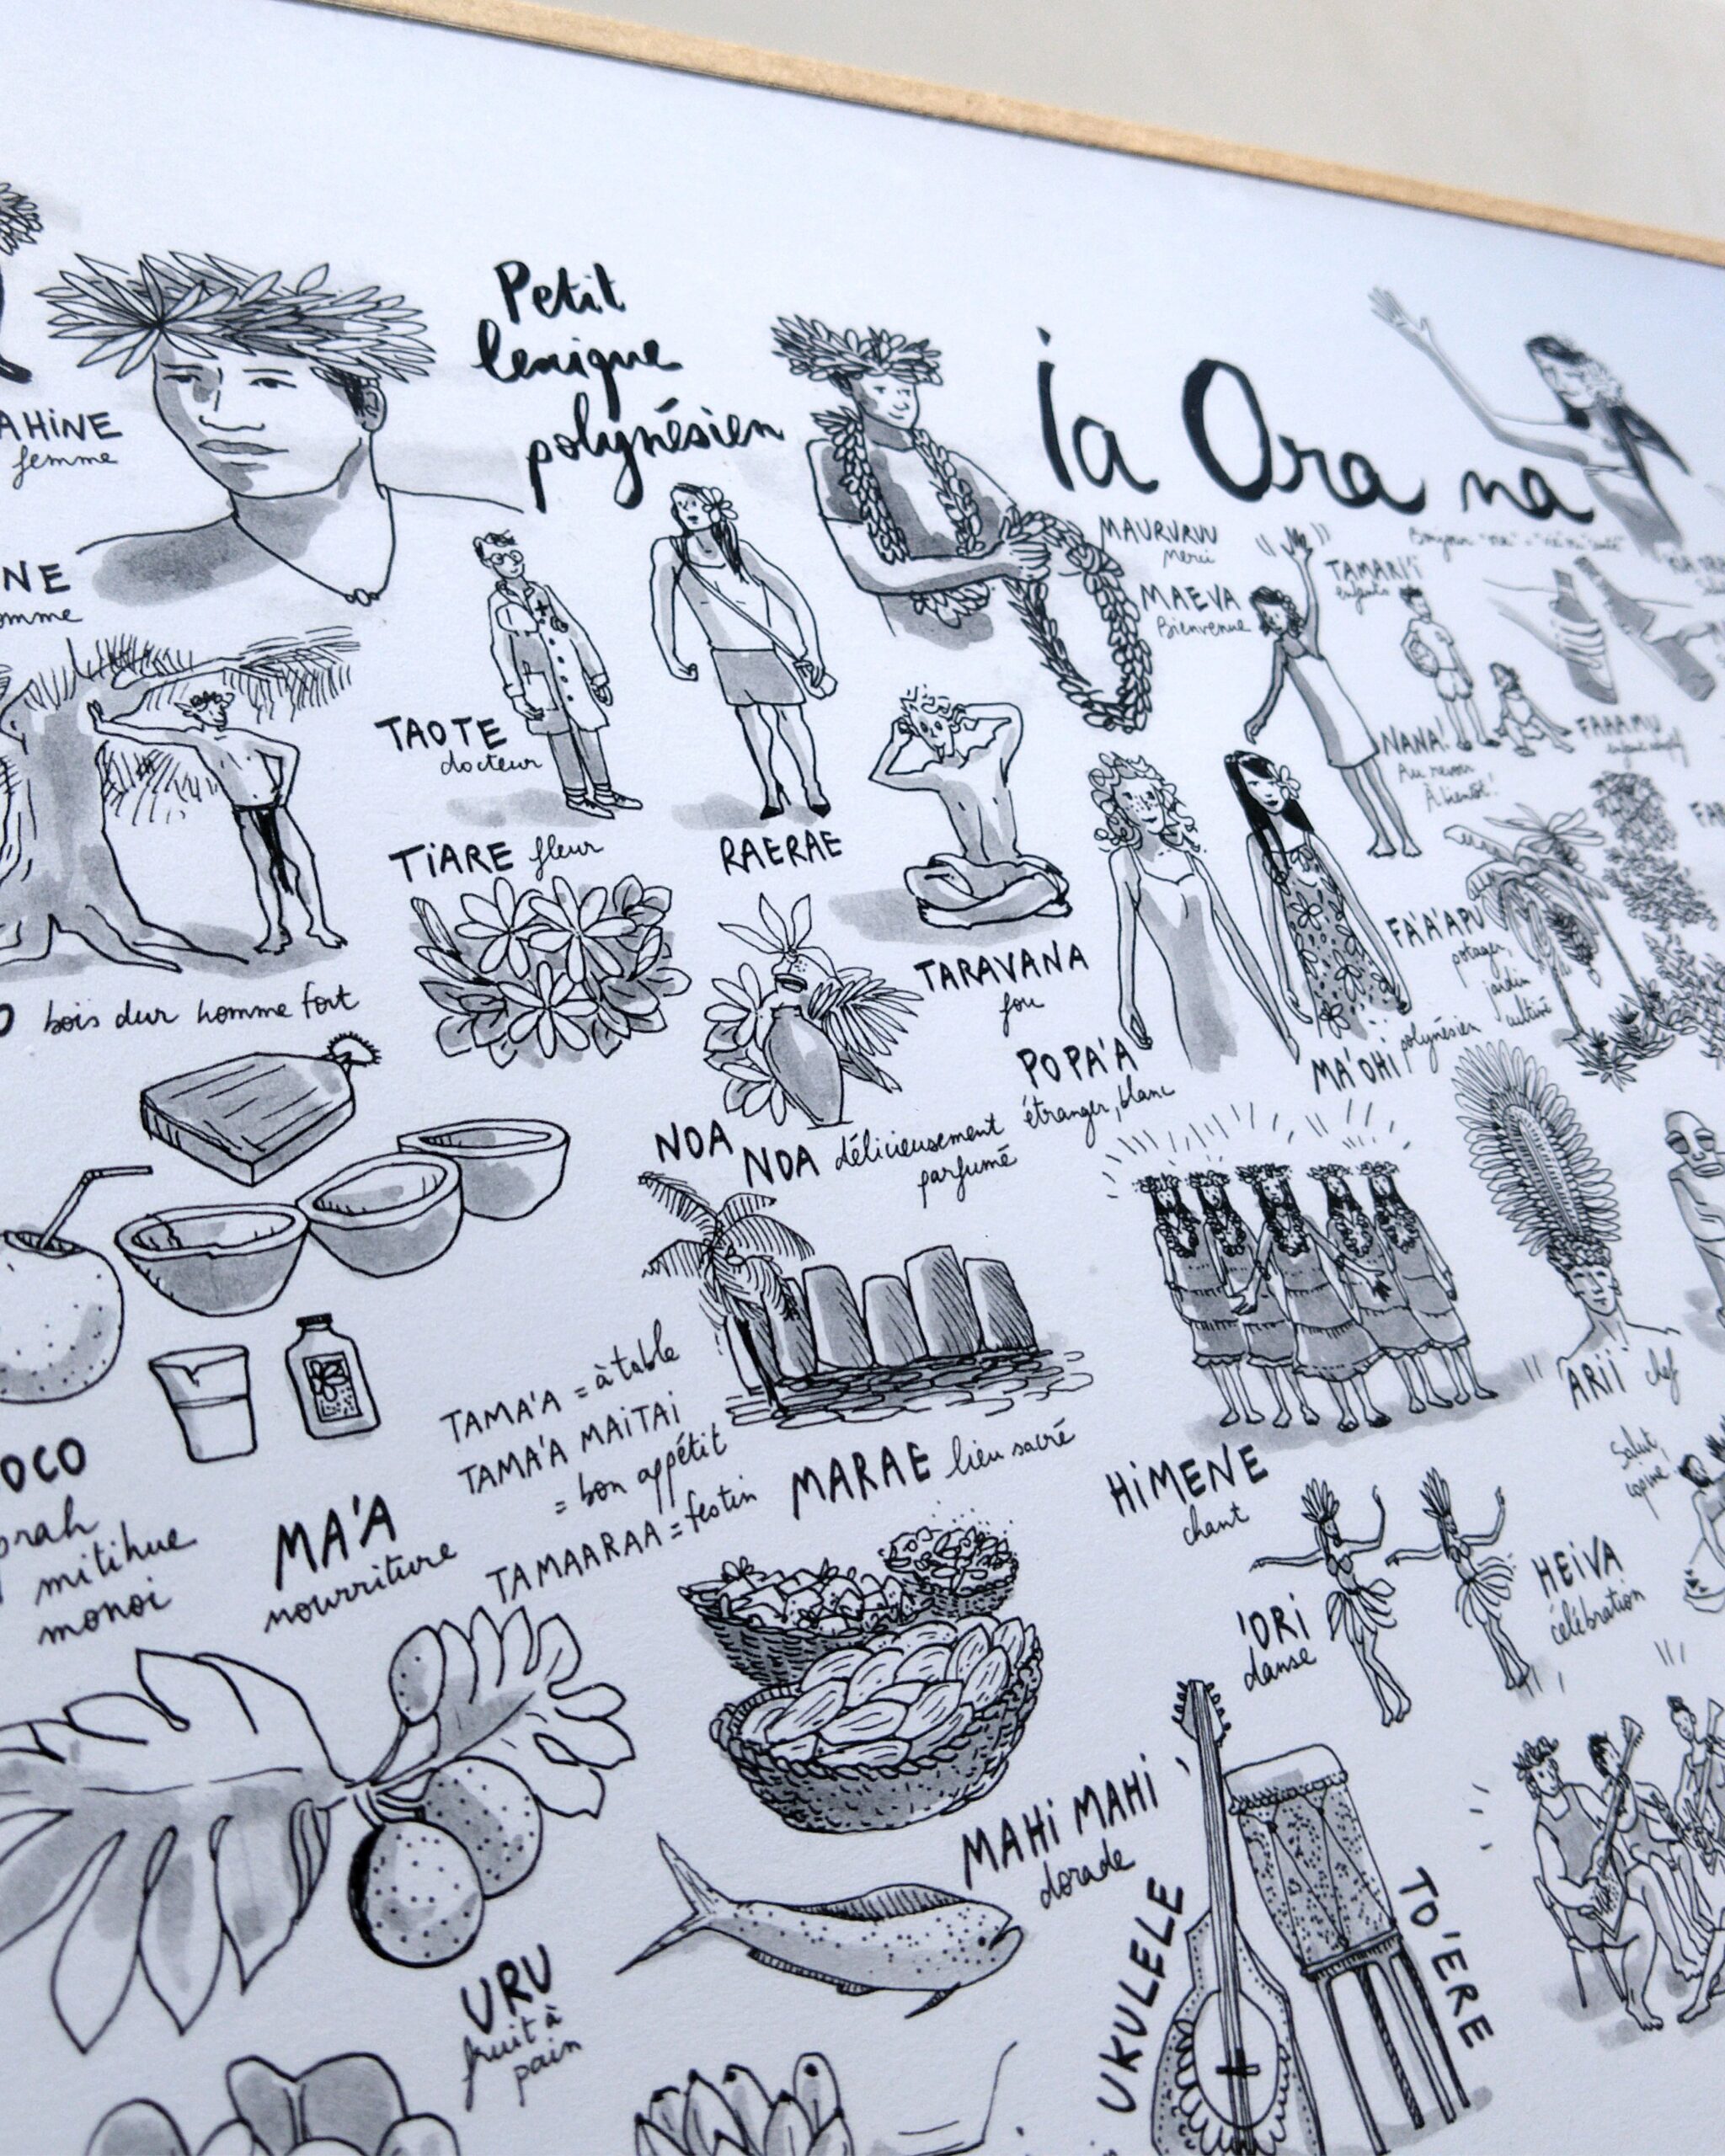 Petit
lexique
polynésien
ia Ora na
AHINE
femme
NE
omme
MAURURU
merci
MAEVA
Bienvenue
TAMARI'I
enfants
TAOTE
docteur
NANA!
Au revoir
À bientôt!
FAAAMU
TIARE fleur
RAERAE
FA'A'APU
potager,
jardin
cultivé
TARAVANA
fou
O bois dur homme fort
POPA'A
étranger, blanc
MA'OHI polynésien
NOA NOA délicieusement
parfumé
TAMA'A = à table
TAMA'A MAITAI
= bon appétit
TAMAARAA = festin
MARAE lieu sacré
ARII chef
HIMENE
chant
Salut,
OCO
mitihue
monoi
MA'A
nourriture
'ORI
danse
HEIVA
célébration
MAHI MAHI
dorade
UKULELE
TO'ERE
URU
fruit à
pain